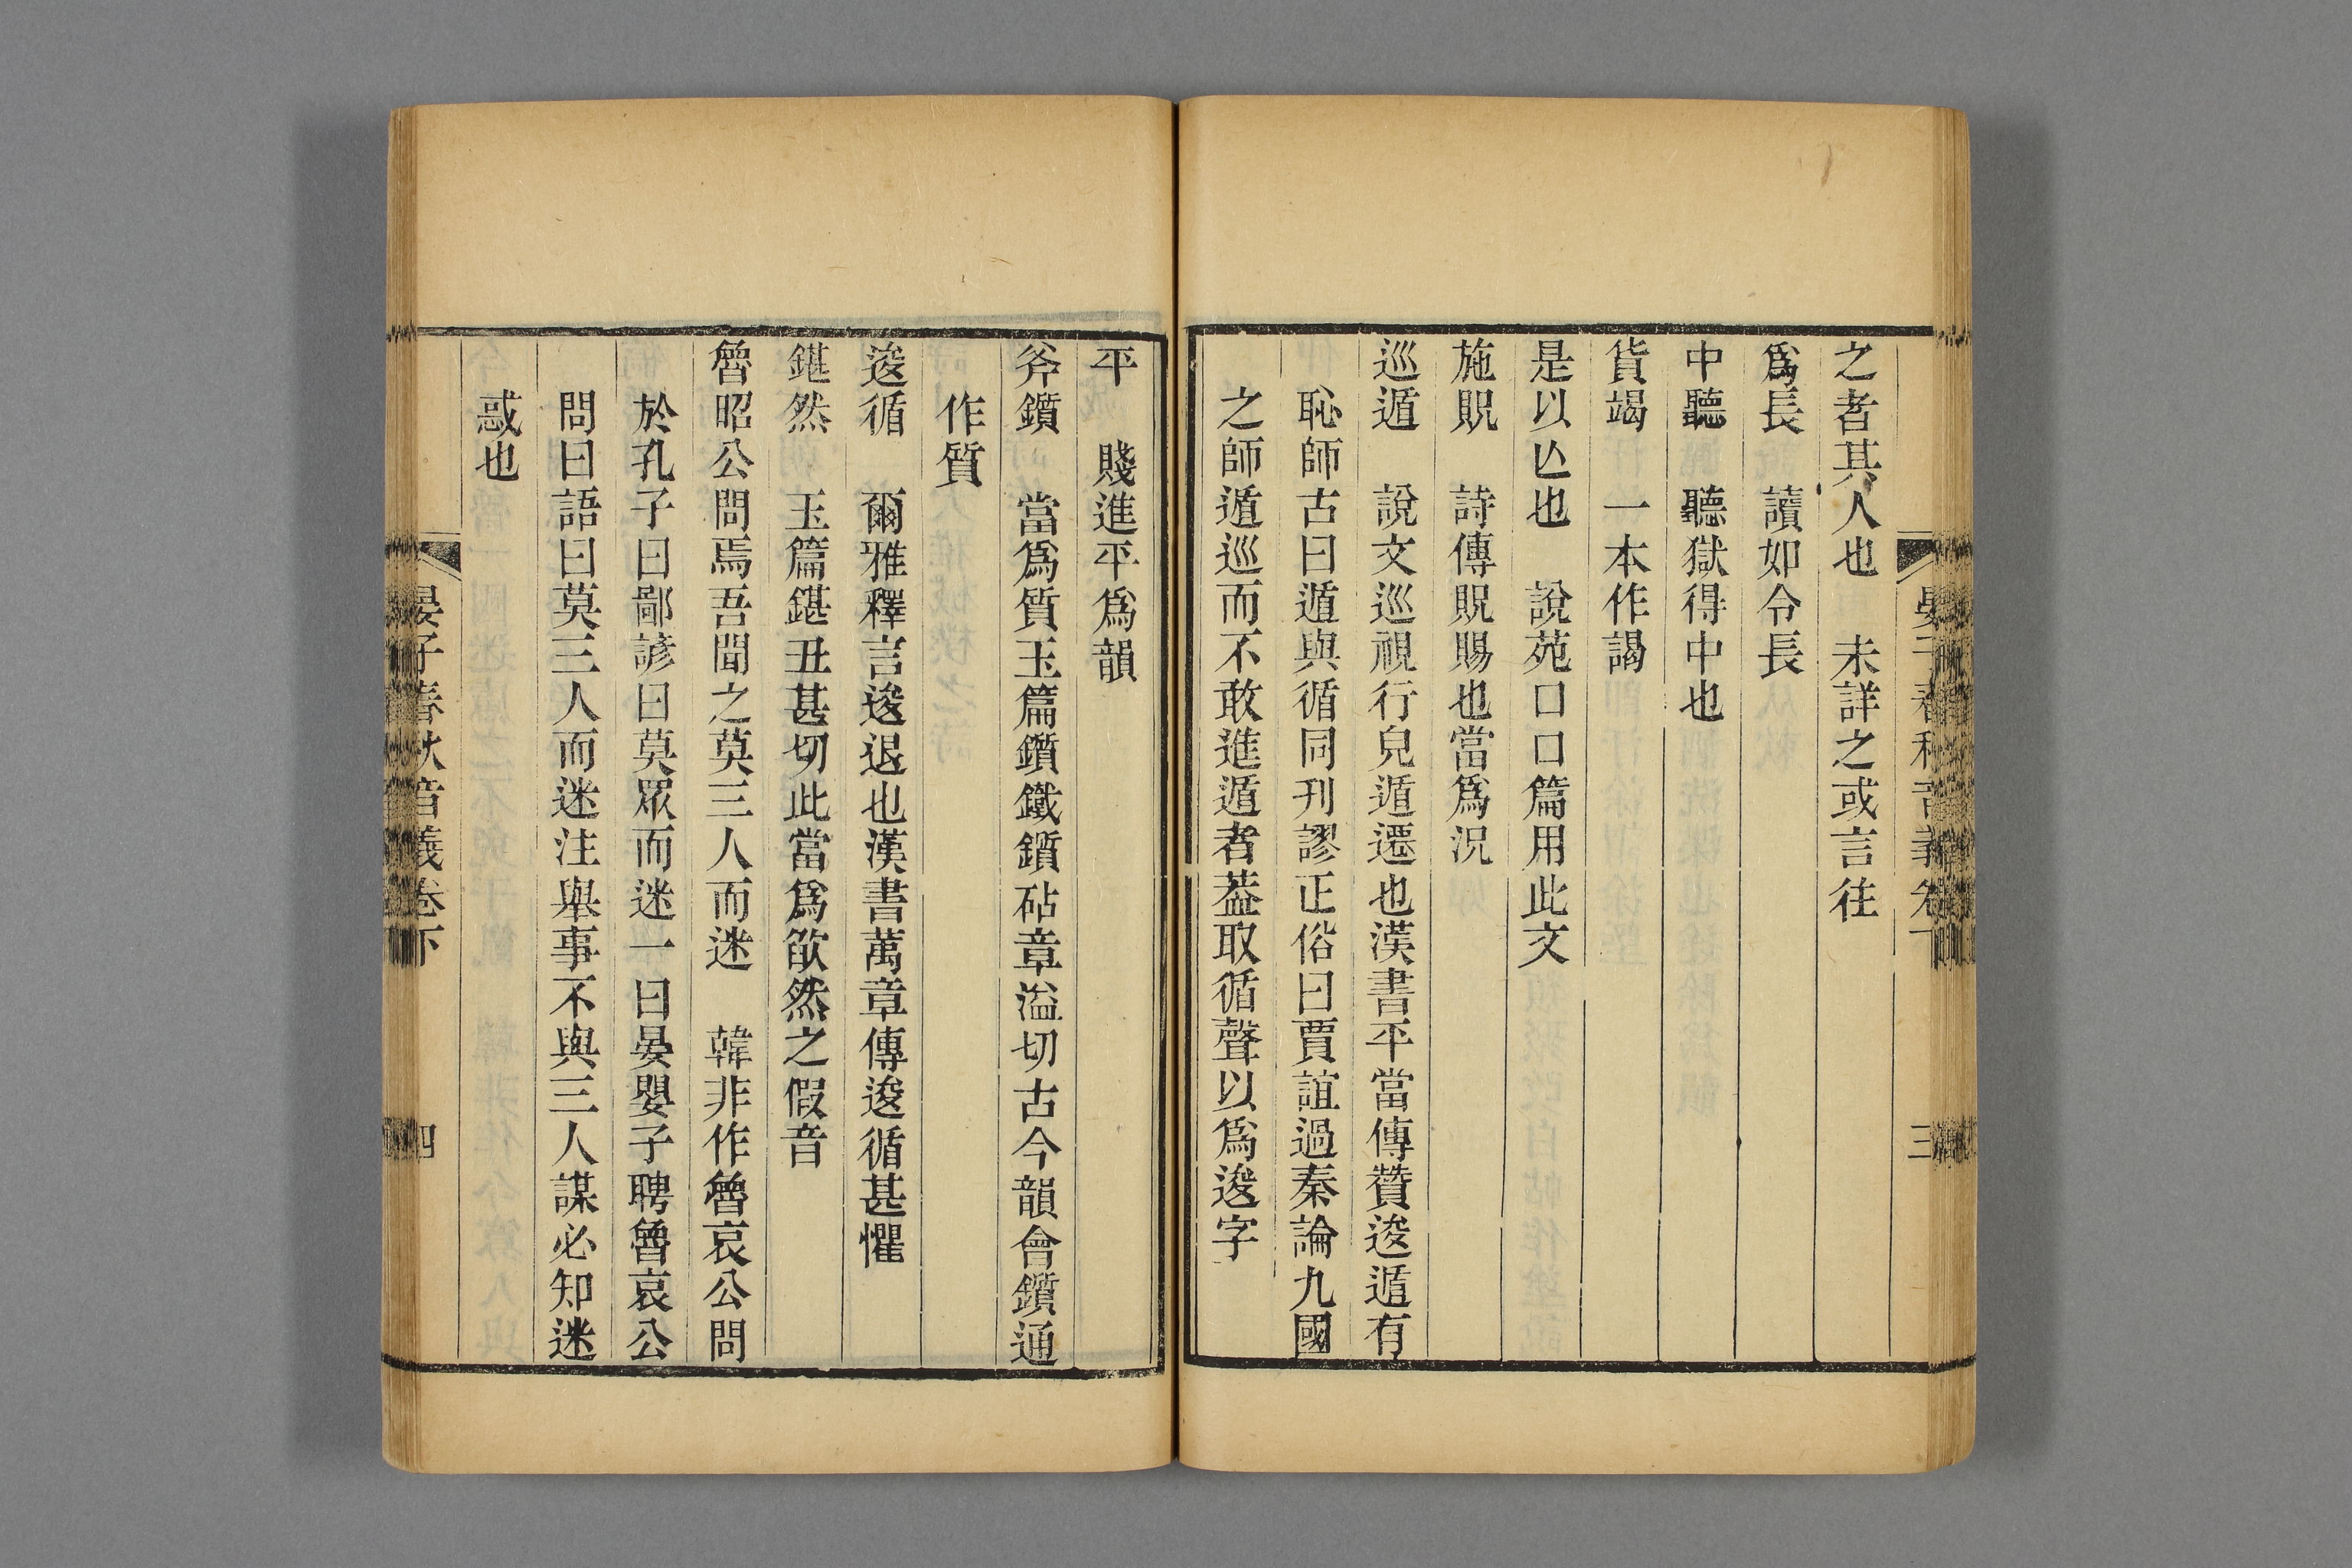 之者其人也　未詳之或言往
爲長　讀如令長
中聽　聽獄得中也
貨竭　一本作謁
是以亾也　說苑口口篇用此文
施貺　詩傳貺賜也當爲況
巡遁　說文巡視行皃遁遷也漢書平當傳贊逡遁有
恥師古曰遁與循同刊謬正俗曰賈誼過秦論九國
之師遁巡而不敢進遁者葢取循聲以爲逡字
平　賤進平爲韻
斧鑕　當爲質玉篇鑕鐵鑕砧章溢切古今韻會鑕通
作質
逡循　爾雅釋言逡退也漢書萬章傳逡循甚懼
鍖然　玉篇鍖丑甚切此當爲欿然之假音
魯昭公問焉吾聞之莫三人而迷　韓非作魯哀公問
於孔子曰鄙諺曰莫眾而迷一曰晏嬰子聘魯哀公
問曰語曰莫三人而迷注舉事不與三人謀必知迷
惑也
晏子春秋音義卷下
四